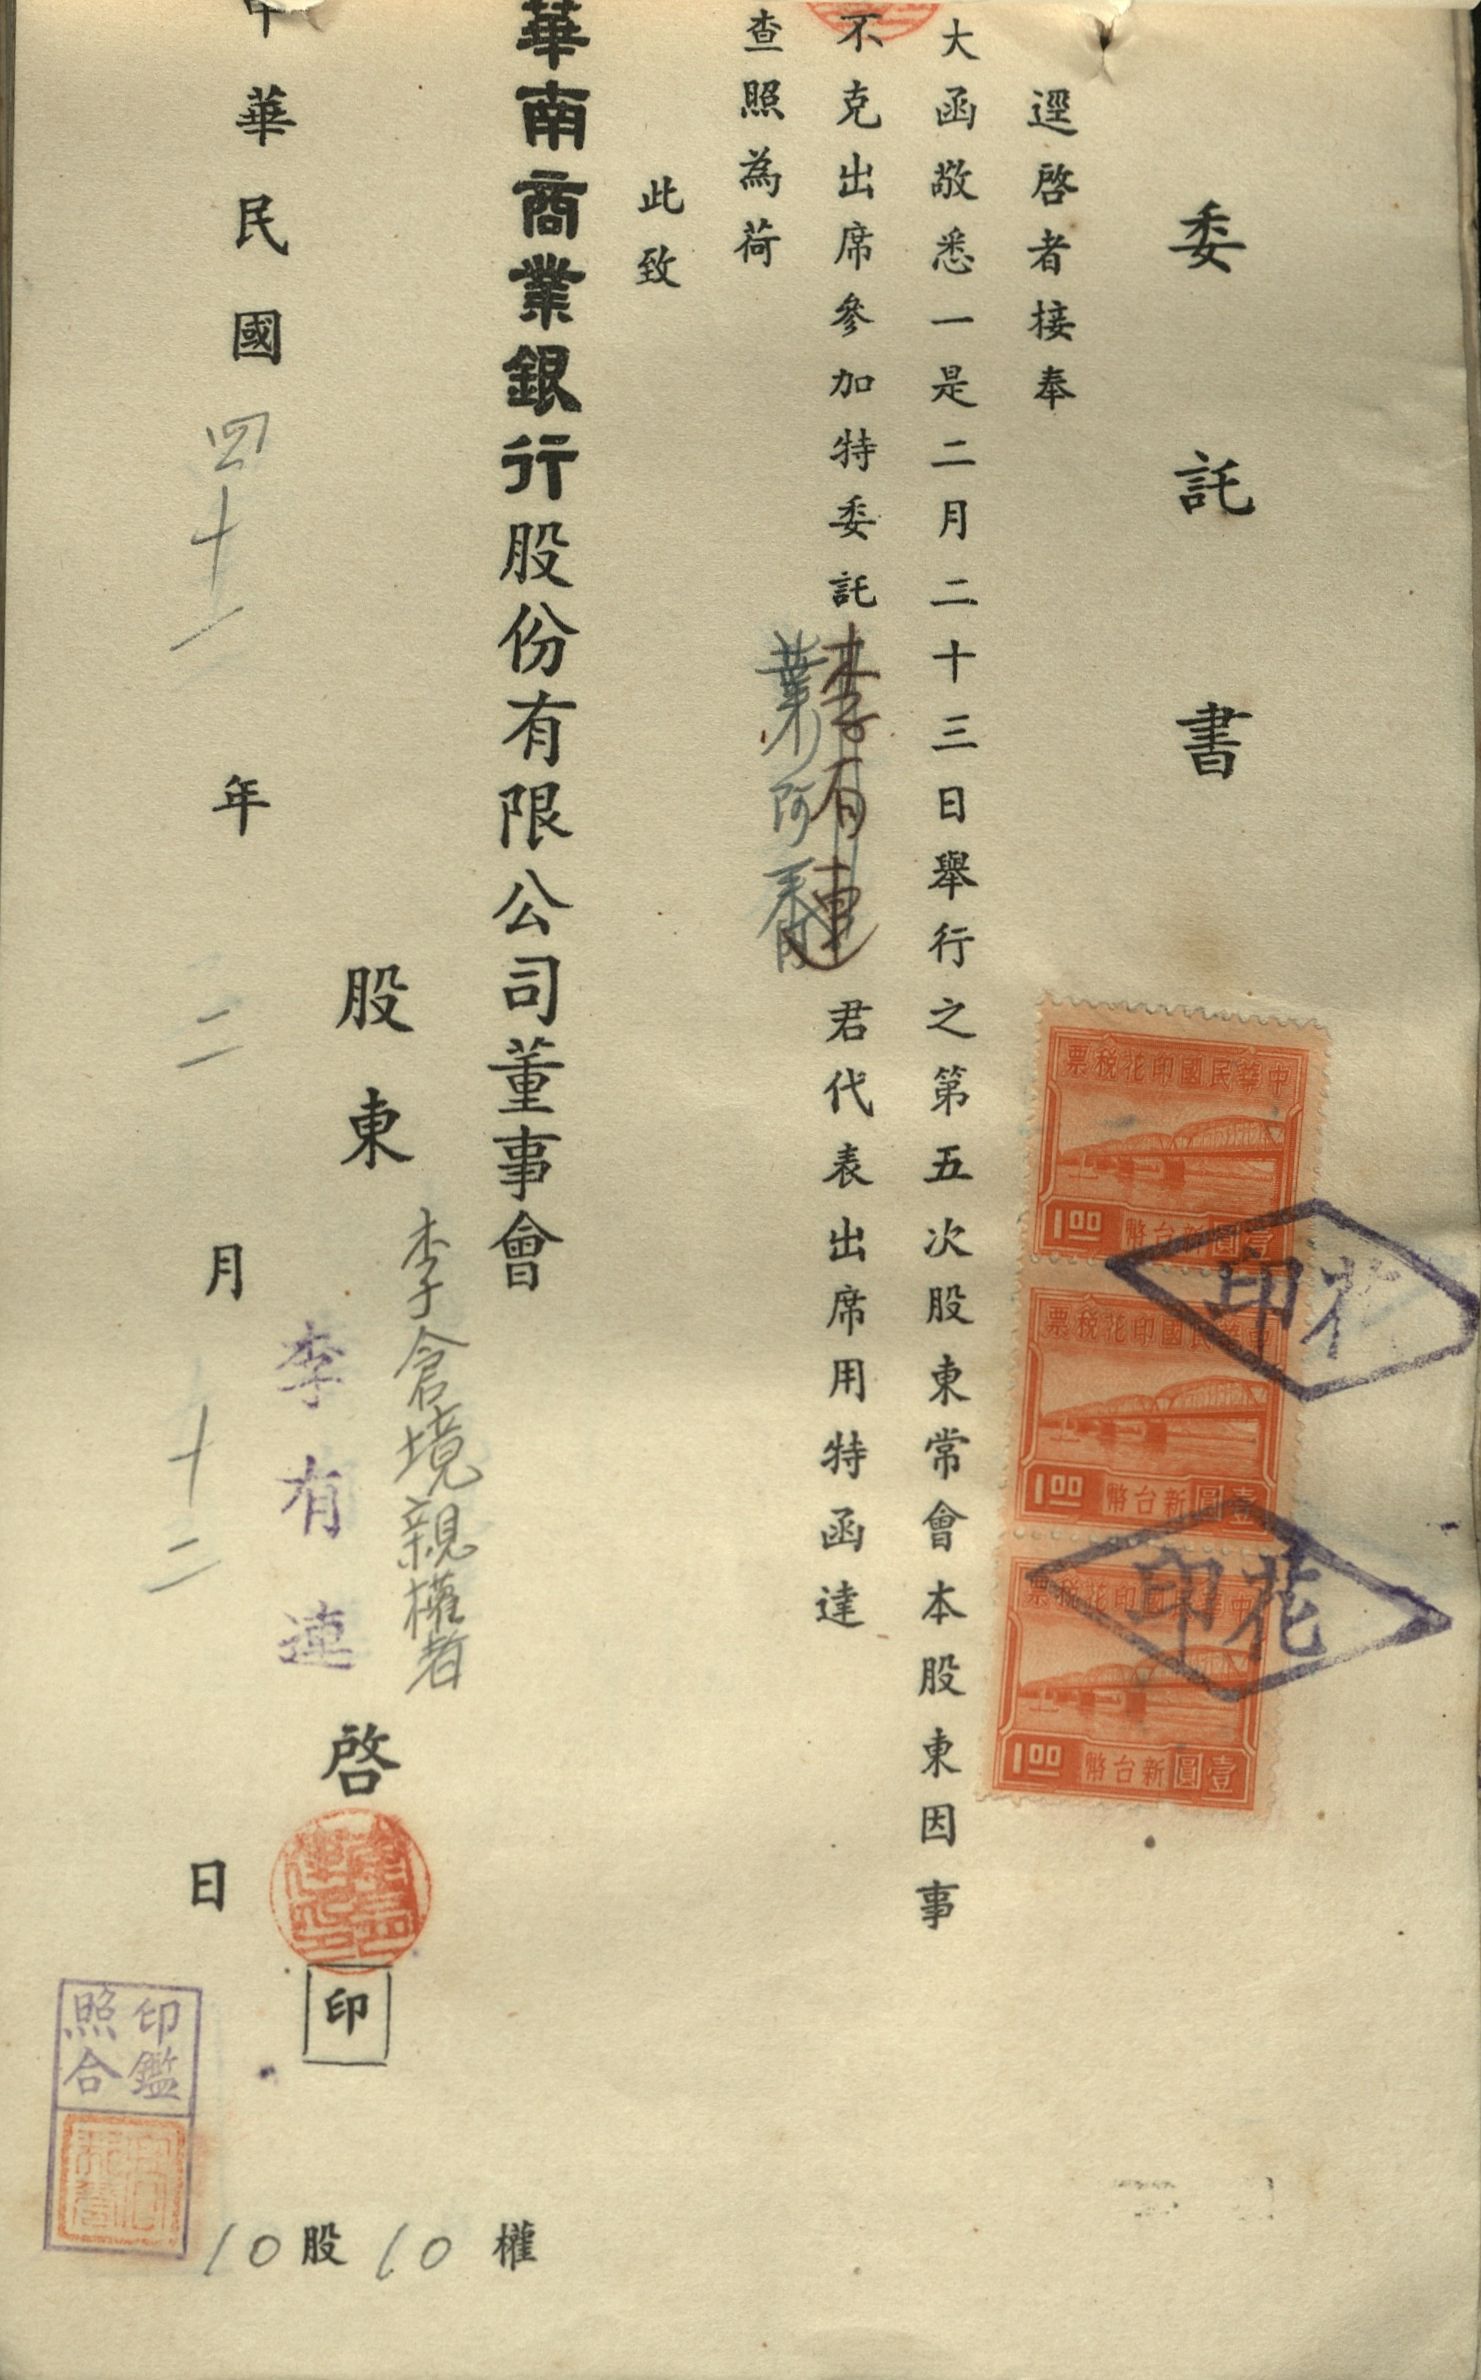 委託書
逕啓者接奉
大函敬悉一是二月二十三日舉行之第五次股東常會本股東因事
不克出席參加特委託李有連君代表出席用特函達
葉阿
查照為荷
此致
華南商業銀行股份有限公司董事會
股東李倉境親權者
李有連啓
印
中華民國四十一年二月十二日
印鑑
照合
10股10權
中華民國印花稅票
1.00
壹圓新台幣
中華民國印花稅票
1.00
壹圓新台幣
中華民國印花稅票
1.00
壹圓新台幣
印花
印花